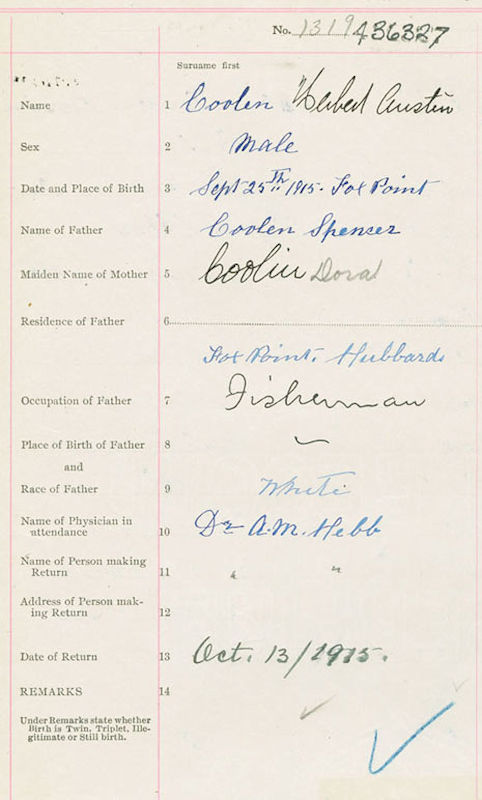 No. 1319 436327
Surname first
Name 1 Coolen Herbert Austin
Sex 2 Male
Date and Place of Birth 3 Sept 25th 1915. Fox Point
Name of Father 4 Coolen Spencer
Maiden Name of Mother 5 Coolin Dora
Residence of Father 6
Fox Point. Hubbards
Occupation of Father 7 Fisherman
Place of Birth of Father 8
and
Race of Father 9 White
Name of Physician in
attendance 10 Dr A.M. Hebb
Name of Person making
Return 11 " "
Address of Person mak-
ing Return 12
Date of Return 13 Oct. 13/1915.
REMARKS 14
Under Remarks state whether
Birth is Twin, Triplet, Ille-
gitimate or Still birth.